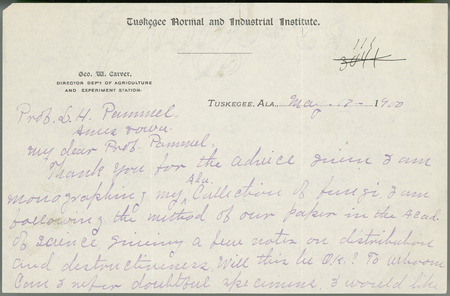 Tuskegee Normal and Industrial Institute.
115
3041
Geo. W. Carver,
DIRECTOR DEP'T OF AGRICULTURE
AND EXPERIMENT STATION.
TUSKEGEE, ALA., May 2- 1900
Prof. L. H. Pammel.
Ames Iowa.
My dear Prof. Pammel,
Thank you for the advice given I am
monographing my Ala. Collection of fungi, I am
following the method of our paper in the Acad.
of science giving a few notes on distribution
and destructiveness, Will this be OK? To whoom
Can I refer doubtful specimens, I would like